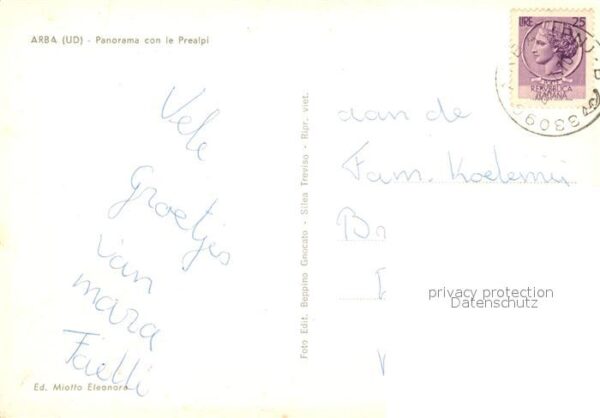 ARBA (UD) - Panorama con le Prealpi
Vele
Groetjes
van
mara
Faelli
Ed. Miotto Eleonora
Foto Edit. Beppino Gnocato - Silea Treviso - Ripr. viet.
LIRE 25
REPVBBLICA
ITALIANA
3309
aan de
Fam.
B
privacy protection
Datenschutz